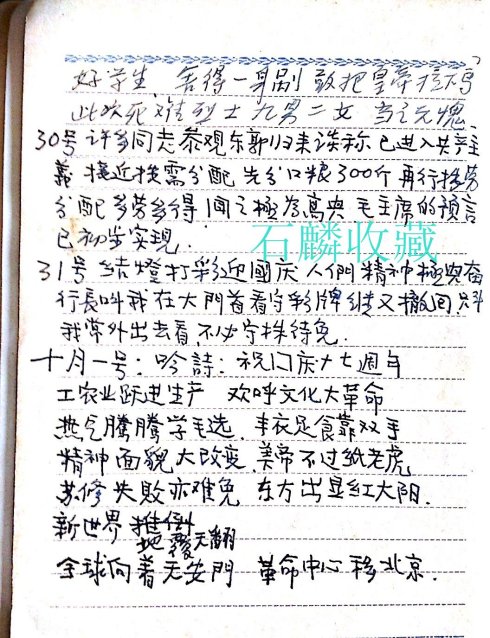 好学生 舍得一身剐 敢把皇帝拉下马
此次死难烈士九男二女 当之无愧
30号 许多同志参观东郭归来谈称 已进入共产主
义 接近按需分配 先分口粮300斤 再行按劳
分配 多劳多得 闻之极为高兴 毛主席的预言
已初步实现.
31号 结燈打彩迎國庆 人们精神極兴奋
行長叫我在大門首看守彩牌 继又撤回 只斗
我常外出去看,不必守株待兔.
十月一号: 吟詩: 祝门庆十七週年
工农业跃进生产 欢呼文化大革命
热气騰騰学毛选. 丰衣足食靠双手
精神面貌大改变. 美帝不过纸老虎
苏修失败亦难免 东方出显紅太阳.
新世界推倒
地覆天翻
全球向着天安門 革命中心移北京.
石麟收藏